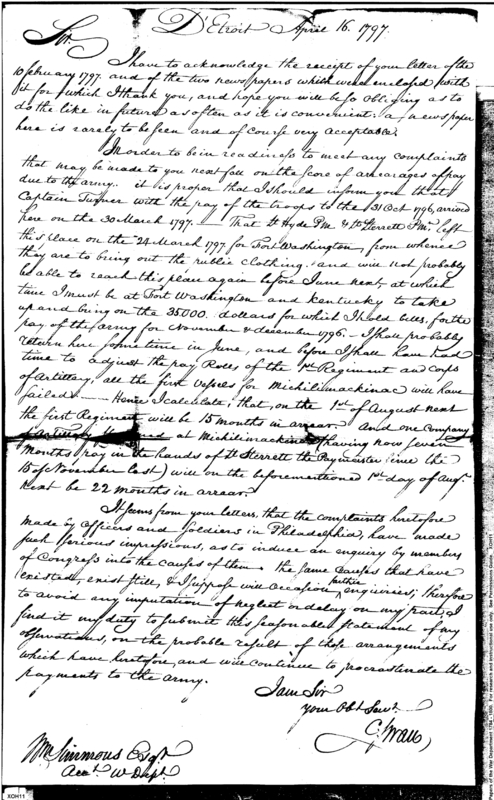 D'Etroit April 16. 1797.
Sir.
I have to acknowledge the receipt of your letter of the
10 february 1797. and of the two news papers which were enclosed with
it for which I thank you, and hope you will be so obliging as to
do the like in future as often as it is convenient: a news paper
here is rarely to be seen and of course very acceptable.
In order to be in readiness to meet any complaints
that may be made to you next fall on the score of arrearages of pay
due to the army. it is proper that I should inform you that
Captain Turner with the pay of the troops to the 31 Oct 1796, arrived
here on the 30 March 1797. — That Lt Hyde PM & Lt Sterrett PMr left
this place on the 24 March 1797 for Fort Washington, from whence
they are to bring out the public clothing, and will not probably
be able to reach this place again before June next, at which
time I must be at Fort Washington and Kentucky to take
up and bring on the 35000. dollars for which I hold bills, for the
pay of the army for November & december 1796. — I shall probably
return here some time in June, and before I shall have had
time to adjust the pay Rolls of the 1st Regiment and corps
of Artillery, all the first vessels for Michilimackinac will have
sailed. — Hence I calculate, that, on the 1st of August next
the first Regiment will be 15 months in arrear. And one company
of Artillery at Michilimackinac (having now seven
months pay in the hands of Lt Sterrett the Paymaster since the
15 of November last) will on the beforementioned 1st day of Augt.
next be 22 months in arrear.
It seems from your letters, that the complaints heretofore
made by officers and soldiers in Philadelphia, have made
such serious impressions, as to induce an enquiry by members
of Congress into the causes of them. the same causes that have
existed, exist still, & I suppose will occasion further enquiries; therefore
to avoid any imputation of neglect or delay on my part, I
find it my duty to submit this seasonable statement of my
observations, on the probable result of those arrangements
which have heretofore, and will continue to procrastinate the
payments to the army.
I am Sir
your Obt Servt.
C. Swan
Wm Simmons Esqr
Acct. W Dept.
XOH11